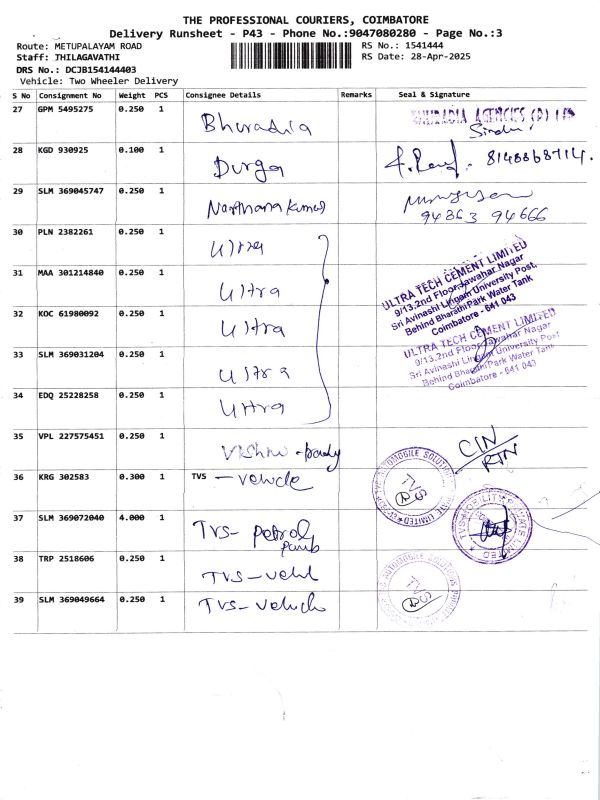 THE PROFESSIONAL COURIERS, COIMBATORE
Delivery Runsheet - P43 - Phone No.:9047080280 - Page No.:3
Route: METUPALAYAM ROAD RS No.: 1541444
Staff: JHILAGAVATHI RS Date: 28-Apr-2025
DRS No.: DCJB154144403
Vehicle: Two Wheeler Delivery
S No Consignment No Weight PCS Consignee Details Remarks Seal & Signature
27 GPM 5495275 0.250 1 Bhuradia BHURADIA AGENCIES (P) LTD
Sindhu
28 KGD 930925 0.100 1 Durga 8148868714.
29 SLM 369045747 0.250 1 Narthana Kumar
94863 94666
30 PLN 2382261 0.250 1 Ultra
31 MAA 301214840 0.250 1 Ultra
32 KOC 61980092 0.250 1 Ultra
33 SLM 369031204 0.250 1 Ultra
34 EDQ 25228258 0.250 1 Ultra
ULTRA TECH CEMENT LIMITED
9/13,2nd Floor,Jawahar Nagar
Sri Avinashi Lingam University Post,
Behind Bharathi Park Water Tank
Coimbatore - 641 043
ULTRA TECH CEMENT LIMITED
9/13,2nd Floor,Jawahar Nagar
Sri Avinashi Lingam University Post
Behind Bharathi Park Water Tank
Coimbatore - 641 043
35 VPL 227575451 0.250 1 Vishnu - CIN
RTN
36 KRG 302583 0.300 1 TVS - vehicle
37 SLM 369072040 4.000 1 TVS- petrol
38 TRP 2518606 0.250 1 TVS - vehl
39 SLM 369049664 0.250 1 TVS- vehicle
AUTOMOBILE SOLUTIONS PRIVATE LIMITED
TVS
TVS MOBILITY PRIVATE LIMITED
AUTOMOBILE SOLUTIONS PRIVATE LIMITED
TVS